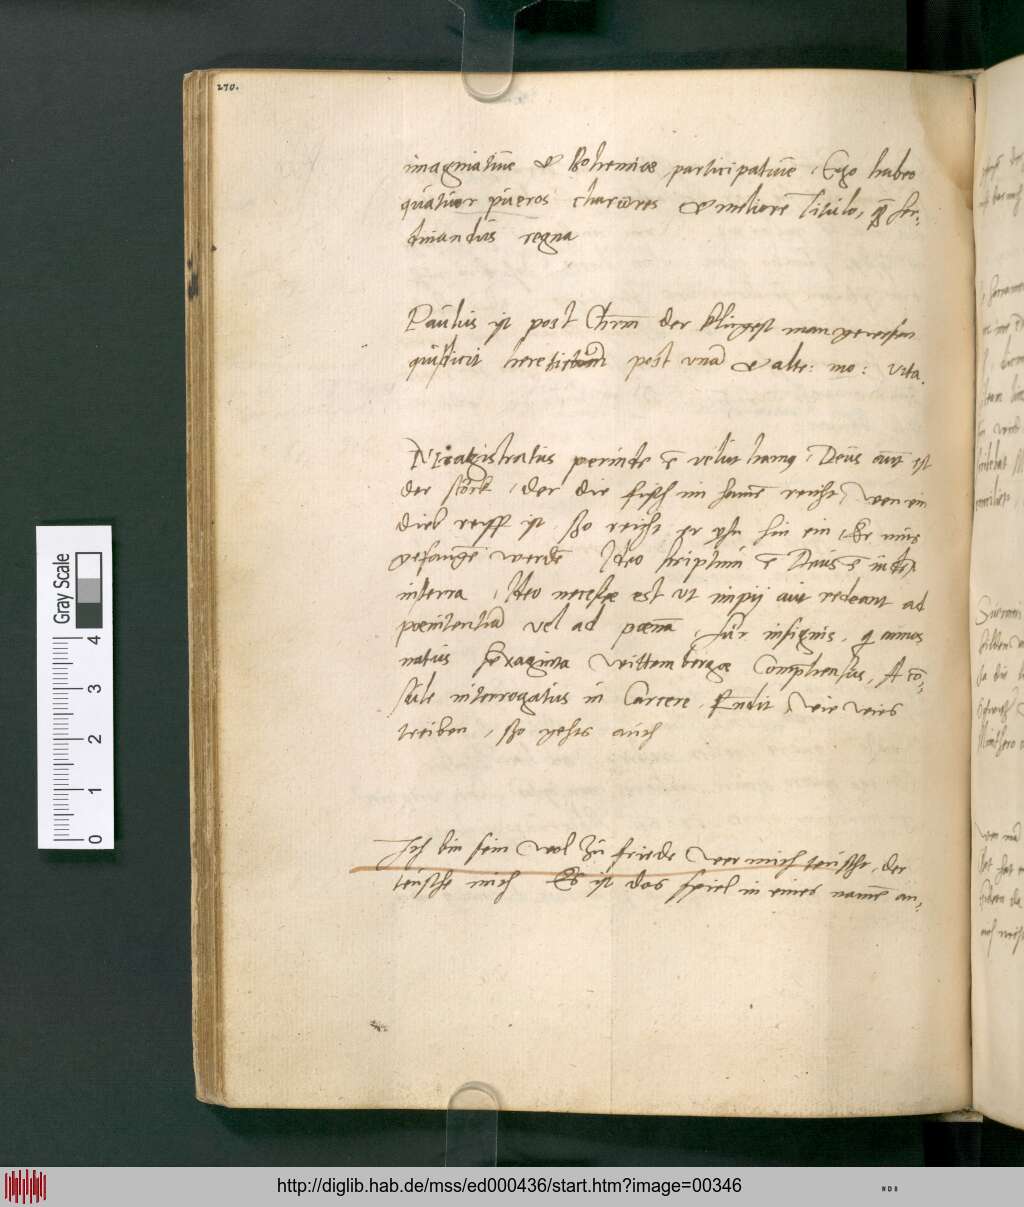 270.
imaginative & Bohemiae participative, Ego habeo
quatuor pueros chariores & meliore Titulo, qȝ fer:
dinandus regna
Paulus ist post Chrm der klugest man gewesen
qui dicit hereticum post unā & alte: mo: vita.
Magistratus perinde ē velut hamg, Deus aut est
der stôrck, der die fisch im hame reicht, wen ein
dieb reyff ist, sso reicht er yhn hin ein, Er mus
gefange werdē Ideo scriptum ē Deus ē iudex
in terra, Ideo necesse est ut impij aut redeant ad
poenitentiā vel ad poenā, für insignis, q annos
natus sexaginta wittembergae comphensus, A cō:
sule interrogatus in Carcere, Rndit, wie wirs
treiben, sso gehts auch
Ich bin sein wol zu friede wer mich teuscht, der
teusche mich Es ist das spiel in eines namē an:
Gray Scale
4
3
2
1
0
http://diglib.hab.de/mss/ed000436/start.htm?image=00346